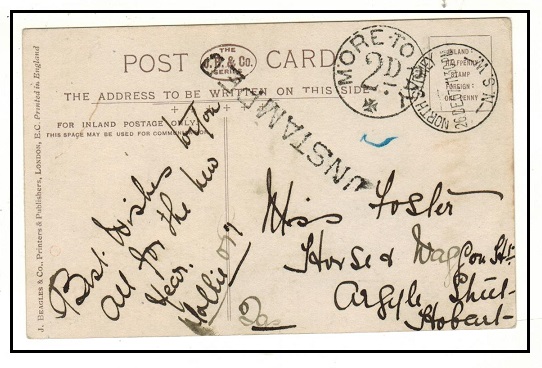 POST CARD
THE
J.B. & Co.
SERIES
THE ADDRESS TO BE WRITTEN ON THIS SIDE
FOR INLAND POSTAGE ONLY
THIS SPACE MAY BE USED FOR COMMUNICATION
J. BEAGLES & Co., Printers & Publishers, LONDON, E.C. Printed in England
MORE TO PAY
2D
UNSTAMPED
NORTH SYDNEY
N.S.W.
INLAND:
HALFPENNY
STAMP
FOREIGN:
ONE PENNY
Best Wishes to you
all for the New
Year.
Miss Foster
Horse &
Argyle
Hobart